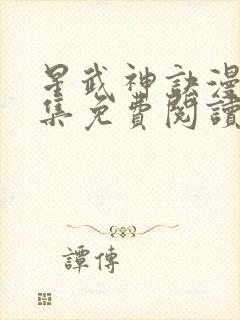 星武神訣漫
集免費閱讀
譚傳